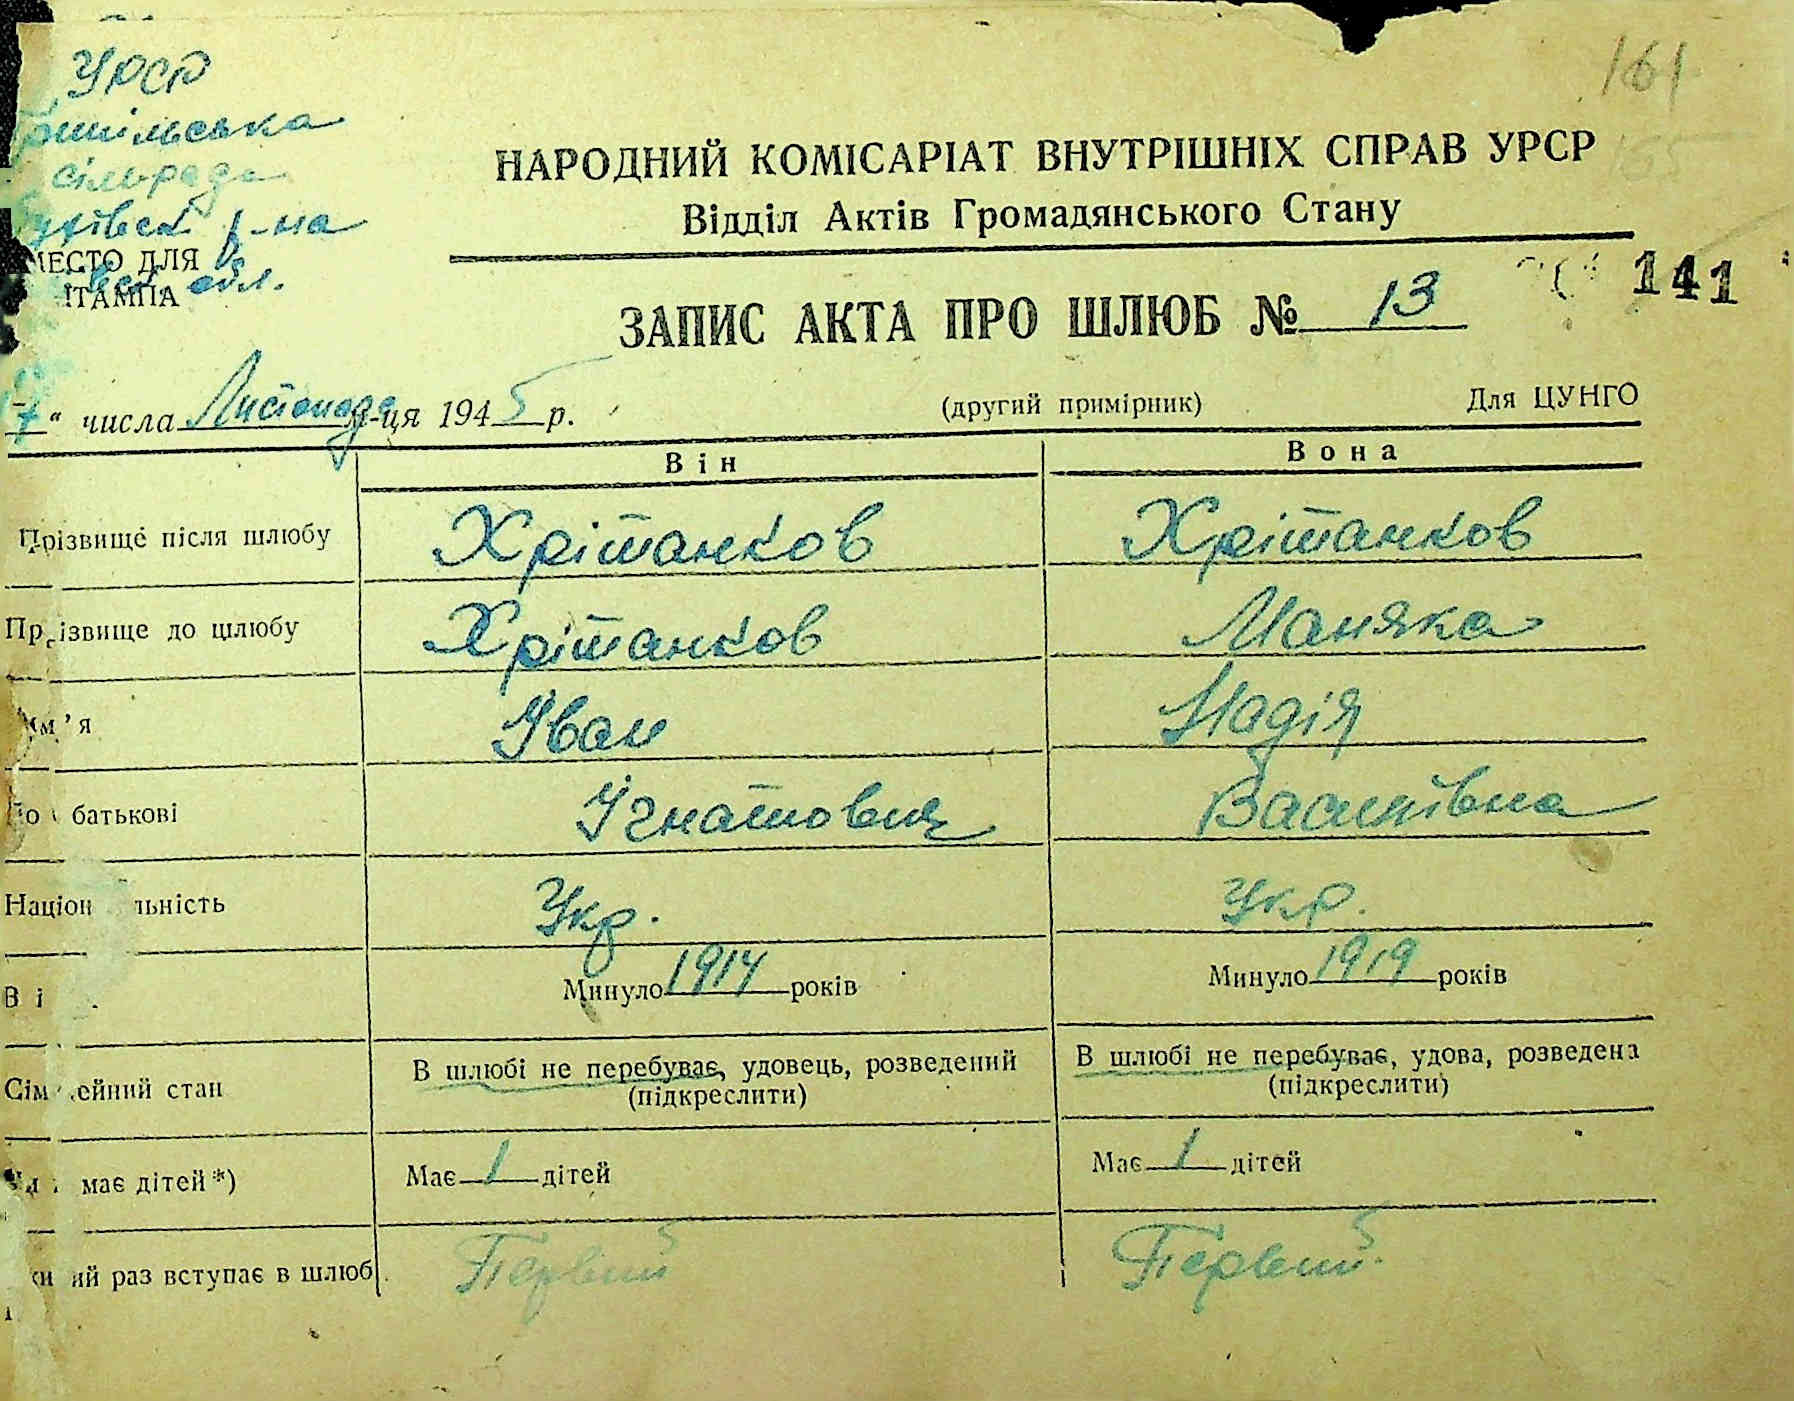 УРСР
сільрада
р-на
МЕСТО ДЛЯ
обл.
ШТАМПА
161
165
НАРОДНИЙ КОМІСАРІАТ ВНУТРІШНІХ СПРАВ УРСР
Відділ Актів Громадянського Стану
141
ЗАПИС АКТА ПРО ШЛЮБ № 13
7 " числа Листопада м-ця 1945 р.
(другий примірник)
Для ЦУНГО
Він
Вона
Прізвище після шлюбу Хрітанков Хрітанков
Прізвище до шлюбу Хрітанков Маняка
Им'я Іван Надія
По батькові Ігнатович Василівна
Національність Укр. Укр.
Ві Минуло 1914 років Минуло 1919 років
Сімейний стан В шлюбі не перебуває, удовець, розведений В шлюбі не перебуває, удова, розведена
(підкреслити) (підкреслити)
має дітей*) Має 1 дітей Має 1 дітей
який раз вступає в шлюб Первий Первий.